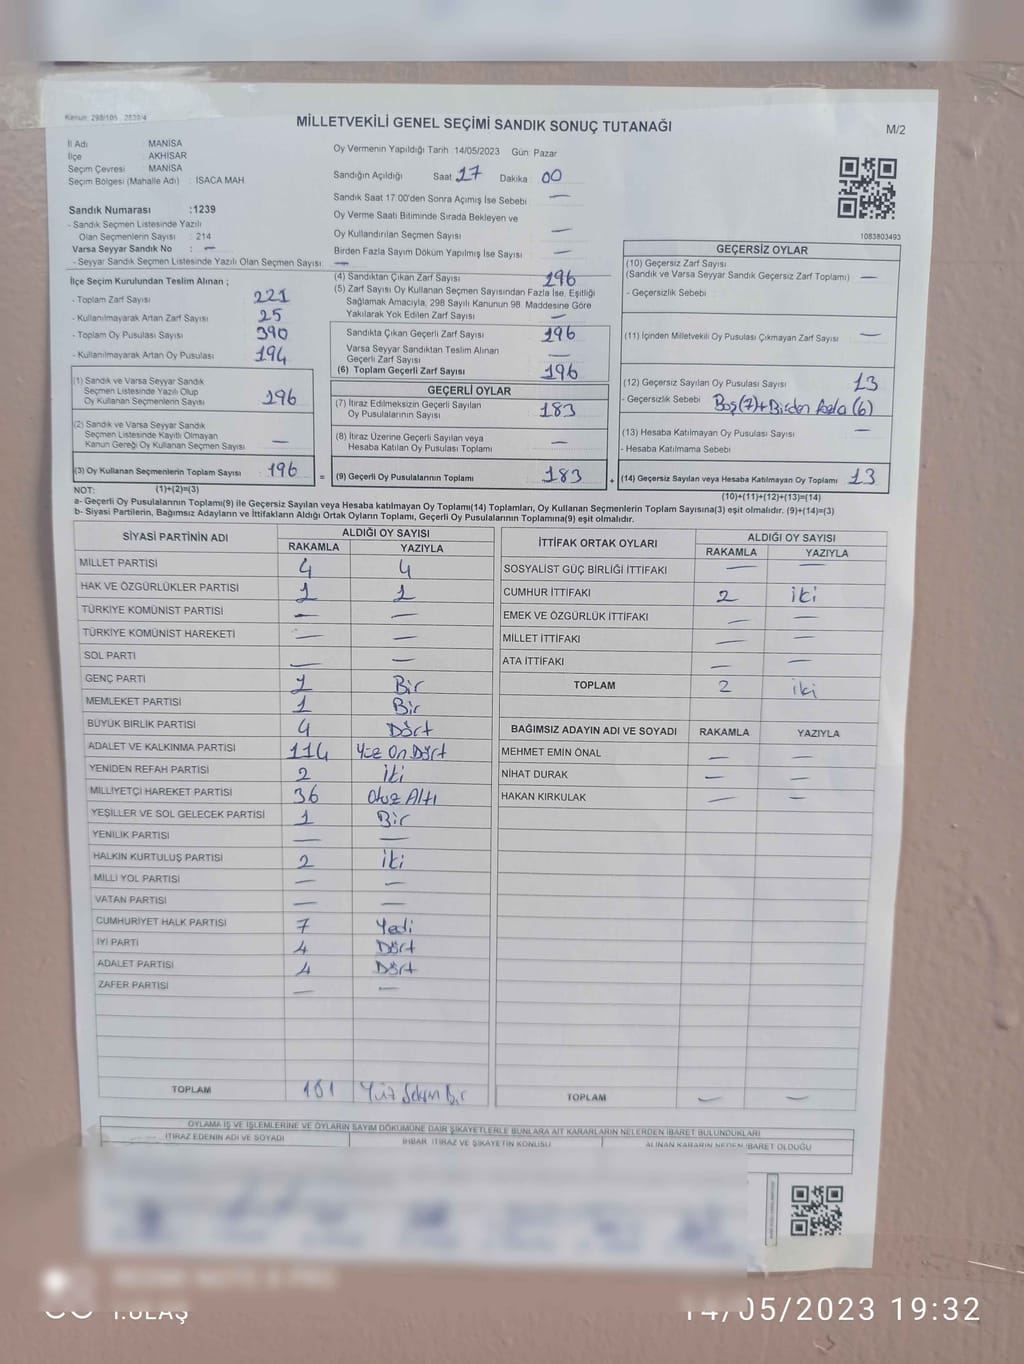 Kanun: 298/105
MİLLETVEKİLİ GENEL SEÇİMİ SANDIK SONUÇ TUTANAĞI
M/2
İl Adı : MANİSA
İlçe : AKHİSAR
Seçim Çevresi : MANİSA
Seçim Bölgesi (Mahalle Adı) : ISACA MAH.
Sandık Numarası :1239
- Sandık Seçmen Listesinde Yazılı
Olan Seçmenlerin Sayısı : 214
Varsa Seyyar Sandık No : —
- Seyyar Sandık Seçmen Listesinde Yazılı Olan Seçmen Sayısı: —
Oy Vermenin Yapıldığı Tarih :14/05/2023 Gün: Pazar
Sandığın Açıldığı Saat 17 Dakika 00
Sandık Saat 17:00'den Sonra Açılmış İse Sebebi —
Oy Verme Saati Bitiminde Sırada Bekleyen ve
Oy Kullandırılan Seçmen Sayısı —
Birden Fazla Sayım Döküm Yapılmış İse Sayısı —
1083803493
İlçe Seçim Kurulundan Teslim Alınan ;
- Toplam Zarf Sayısı 221
- Kullanılmayarak Artan Zarf Sayısı 25
- Toplam Oy Pusulası Sayısı 390
- Kullanılmayarak Artan Oy Pusulası 194
(1) Sandık ve Varsa Seyyar Sandık
Seçmen Listesinde Yazılı Olup
Oy Kullanan Seçmenlerin Sayısı 196
(2) Sandık ve Varsa Seyyar Sandık
Seçmen Listesinde Kayıtlı Olmayan
Kanun Gereği Oy Kullanan Seçmen Sayısı —
(3) Oy Kullanan Seçmenlerin Toplam Sayısı 196
(4) Sandıktan Çıkan Zarf Sayısı 196
(5) Zarf Sayısı Oy Kullanan Seçmen Sayısından Fazla İse, Eşitliği
Sağlamak Amacıyla, 298 Sayılı Kanunun 98. Maddesine Göre
Yakılarak Yok Edilen Zarf Sayısı —
Sandıkta Çıkan Geçerli Zarf Sayısı 196
Varsa Seyyar Sandıktan Teslim Alınan
Geçerli Zarf Sayısı —
(6) Toplam Geçerli Zarf Sayısı 196
GEÇERLİ OYLAR
(7) İtiraz Edilmeksizin Geçerli Sayılan
Oy Pusulalarının Sayısı 183
(8) İtiraz Üzerine Geçerli Sayılan veya
Hesaba Katılan Oy Pusulası Toplamı —
= (9) Geçerli Oy Pusulalarının Toplamı 183
GEÇERSİZ OYLAR
(10) Geçersiz Zarf Sayısı
(Sandık ve Varsa Seyyar Sandık Geçersiz Zarf Toplamı) —
- Geçersizlik Sebebi
(11) İçinden Milletvekili Oy Pusulası Çıkmayan Zarf Sayısı —
(12) Geçersiz Sayılan Oy Pusulası Sayısı 13
- Geçersizlik Sebebi Boş(7)+Birden fazla (6)
(13) Hesaba Katılmayan Oy Pusulası Sayısı —
- Hesaba Katılmama Sebebi
+ (14) Geçersiz Sayılan veya Hesaba Katılmayan Oy Toplamı 13
NOT: (1)+(2)=(3)
(10)+(11)+(12)+(13)=(14)
a- Geçerli Oy Pusulalarının Toplamı(9) ile Geçersiz Sayılan veya Hesaba katılmayan Oy Toplamı(14) Toplamları, Oy Kullanan Seçmenlerin Toplam Sayısına(3) eşit olmalıdır. (9)+(14)=(3)
b- Siyasi Partilerin, Bağımsız Adayların ve İttifakların Aldığı Ortak Oyların Toplamı, Geçerli Oy Pusulalarının Toplamına(9) eşit olmalıdır.
SİYASİ PARTİNİN ADI ALDIĞI OY SAYISI
RAKAMLA YAZIYLA
MİLLET PARTİSİ 4 4
HAK VE ÖZGÜRLÜKLER PARTİSİ 1 1
TÜRKİYE KOMÜNİST PARTİSİ — —
TÜRKİYE KOMÜNİST HAREKETİ — —
SOL PARTİ — —
GENÇ PARTİ 1 Bir
MEMLEKET PARTİSİ 1 Bir
BÜYÜK BİRLİK PARTİSİ 4 Dört
ADALET VE KALKINMA PARTİSİ 114 Yüz On Dört
YENİDEN REFAH PARTİSİ 2 İki
MİLLİYETÇİ HAREKET PARTİSİ 36 Otuz Altı
YEŞİLLER VE SOL GELECEK PARTİSİ 1 Bir
YENİLİK PARTİSİ — —
HALKIN KURTULUŞ PARTİSİ 2 İki
MİLLİ YOL PARTİSİ — —
VATAN PARTİSİ — —
CUMHURİYET HALK PARTİSİ 7 Yedi
İYİ PARTİ 4 Dört
ADALET PARTİSİ 4 Dört
ZAFER PARTİSİ — —
TOPLAM 181 Yüz Seksen Bir
İTTİFAK ORTAK OYLARI ALDIĞI OY SAYISI
RAKAMLA YAZIYLA
SOSYALİST GÜÇ BİRLİĞİ İTTİFAKI — —
CUMHUR İTTİFAKI 2 iki
EMEK VE ÖZGÜRLÜK İTTİFAKI — —
MİLLET İTTİFAKI — —
ATA İTTİFAKI — —
TOPLAM 2 iki
BAĞIMSIZ ADAYIN ADI VE SOYADI RAKAMLA YAZIYLA
MEHMET EMİN ÖNAL — —
NİHAT DURAK — —
HAKAN KIRKULAK — —
TOPLAM — —
OYLAMA İŞ VE İŞLEMLERİNE VE OYLARIN SAYIM DÖKÜMÜNE DAİR ŞİKAYETLERLE BUNLARA AİT KARARLARIN NELERDEN İBARET BULUNDUKLARI
İTİRAZ EDENİN ADI VE SOYADI İHBAR, İTİRAZ VE ŞİKAYETİN KONUSU ALINAN KARARIN NEDEN İBARET OLDUĞU
14/05/2023 19:32